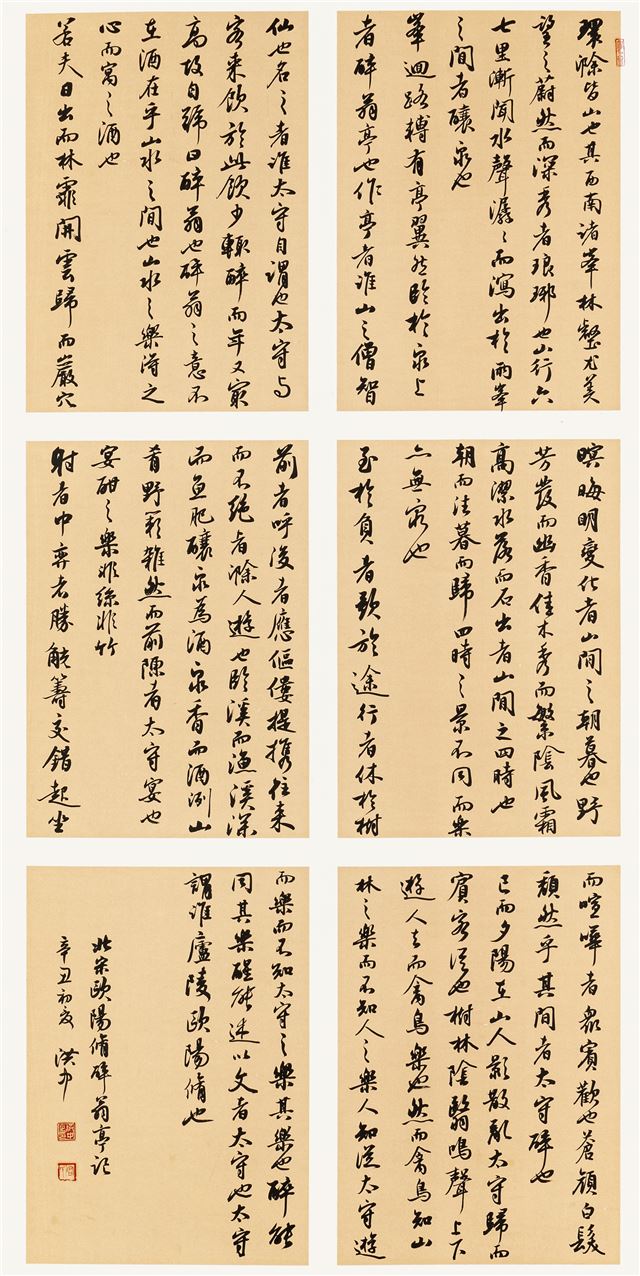 環滁皆山也其西南諸峯林壑尤美
望之蔚然而深秀者琅琊也山行六
七里漸聞水聲潺〻而瀉出於兩峯
之間者釀泉也
峯迴路轉有亭翼然臨於泉上
者醉翁亭也作亭者誰山之僧智
仙也名之者誰太守自謂也太守与
客來飲於此飲少輒醉而年又最
高故自號曰醉翁也醉翁之意不
在酒在乎山水之間也山水之樂得之
心而寓之酒也
若夫日出而林霏開雲歸而巖穴
暝晦明變化者山間之朝暮也野
芳發而幽香佳木秀而繁陰風霜
高潔水落而石出者山間之四時也
朝而往暮而歸四時之景不同而樂
亦無窮也
至於負者歌於途行者休於樹
前者呼後者應傴僂提攜往来
而不絕者滁人遊也臨溪而漁溪深
而魚肥釀泉為酒泉香而酒洌山
肴野蔌雜然而前陳者太守宴也
宴酣之樂非絲非竹
射者中弈者勝觥籌交錯起坐
而喧嘩者衆賓歡也蒼顏白髮
頹然乎其間者太守醉也
已而夕陽在山人影散亂太守歸而
賓客從也樹林陰翳鳴聲上下
遊人去而禽鳥樂也然而禽鳥知山
林之樂而不知人之樂人知從太守遊
而樂而不知太守之樂其樂也醉能
同其樂醒能述以文者太守也太守
謂誰廬陵歐陽脩也
北宋歐陽脩醉翁亭記
辛丑初夏